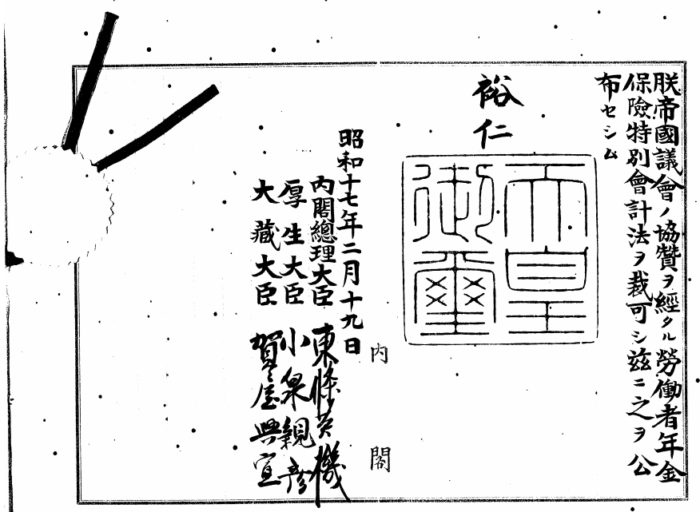 朕帝國議會ノ協贊ヲ經タル勞働者年金
保險特別會計法ヲ裁可シ玆ニ之ヲ公
布セシム
裕仁
天皇御璽
昭和十七年二月十九日
內閣總理大臣 東條英機
厚生大臣 小泉親彥
大藏大臣 賀屋興宣
內閣